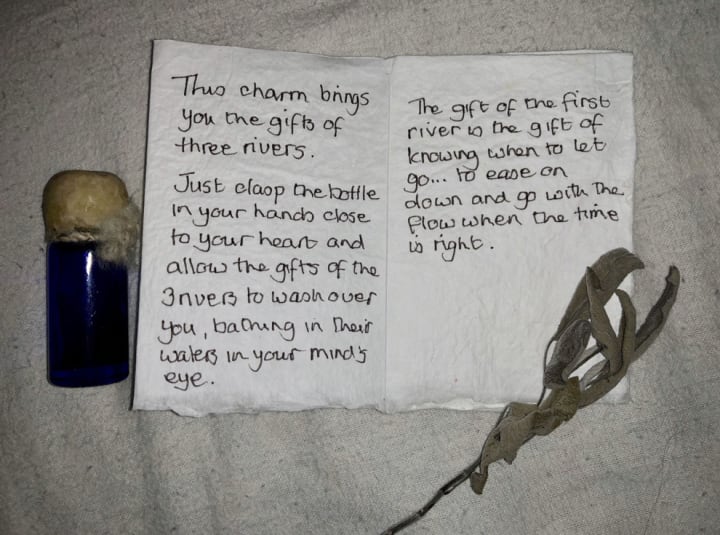 This charm brings
you the gifts of
three rivers.
Just clasp the bottle
in your hands close
to your heart and
allow the gifts of the
3 rivers to wash over
you, bathing in their
waters in your mind's
eye.
The gift of the first
river is the gift of
knowing when to let
go... to ease on
down and go with the
flow when the time
is right.